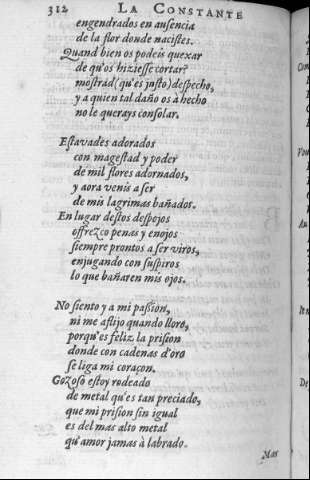 312 LA CONSTANTE
engendrados en ausencia
de la flor donde nacistes.
Quand bien os podeis quexar
de qu'os hiziesse cortar?
mostrad (qu'es justo) despecho,
y a quien tal daño os à hecho
no le querays consolar.
Estavades adorados
con magestad y poder
de mil flores adornados,
y aora venis a ser
de mis lagrimas bañados.
En lugar destos despojos
offrezco penas y enojos
siempre prontos a ser viros,
enjugando con suspiros
lo que bañaren mis ojos.
No siento y a mi passion,
ni me aflijo quando lloro,
porqu'es feliz la prision
donde con cadenas d'oro
se liga mi coraçon.
Gozoso estoy rodeado
de metal qu'es tan preciado,
que mi prision sin igual
es del mas alto metal
qu'amor jamas à labrado.
Mas